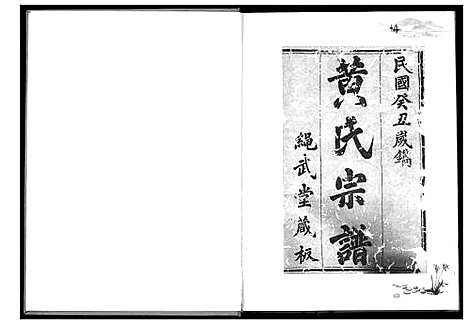 民國癸丑歲鐫
黃氏宗譜
繩武堂藏板